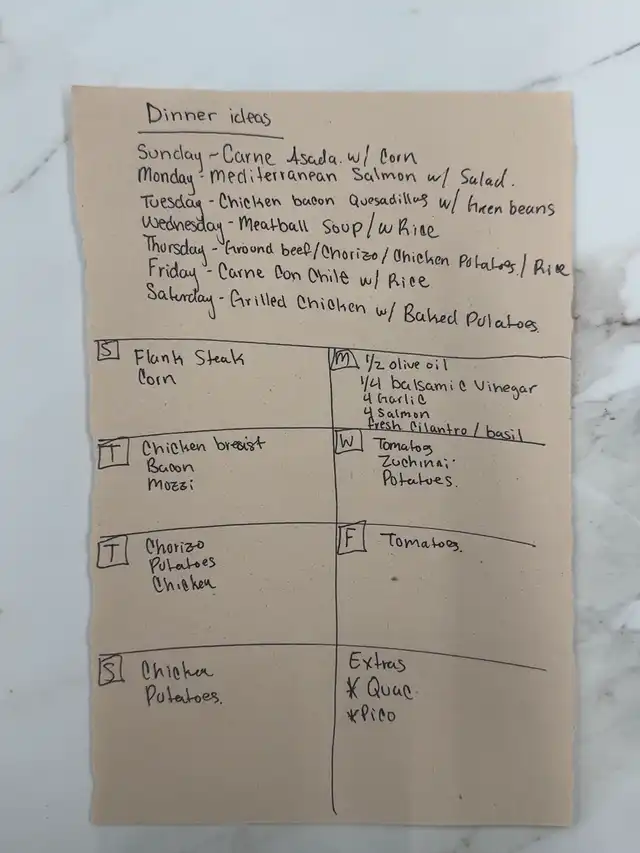 Dinner ideas
Sunday - Carne Asada. w/ Corn
Monday - Mediterranean Salmon w/ Salad.
Tuesday - Chicken bacon Quesadillas w/ Green beans
Wednesday - Meatball Soup/w Rice
Thursday - Ground beef/Chorizo/Chicken Potatoes/Rice
Friday - Carne Con Chile w/ Rice
Saturday - Grilled Chicken w/ Baked Potatoes
S Flank Steak
Corn
M 1/2 olive oil
1/4 balsamic Vinegar
4 Garlic
4 Salmon
fresh Cilantro / basil
T Chicken bresist
Bacon
Mozzi
W Tomatos
Zuchinni
Potatoes.
T Chorizo
Potatoes
Chicken
F Tomatoes.
S Chicken
Potatoes.
Extras
* Quac
* Pico